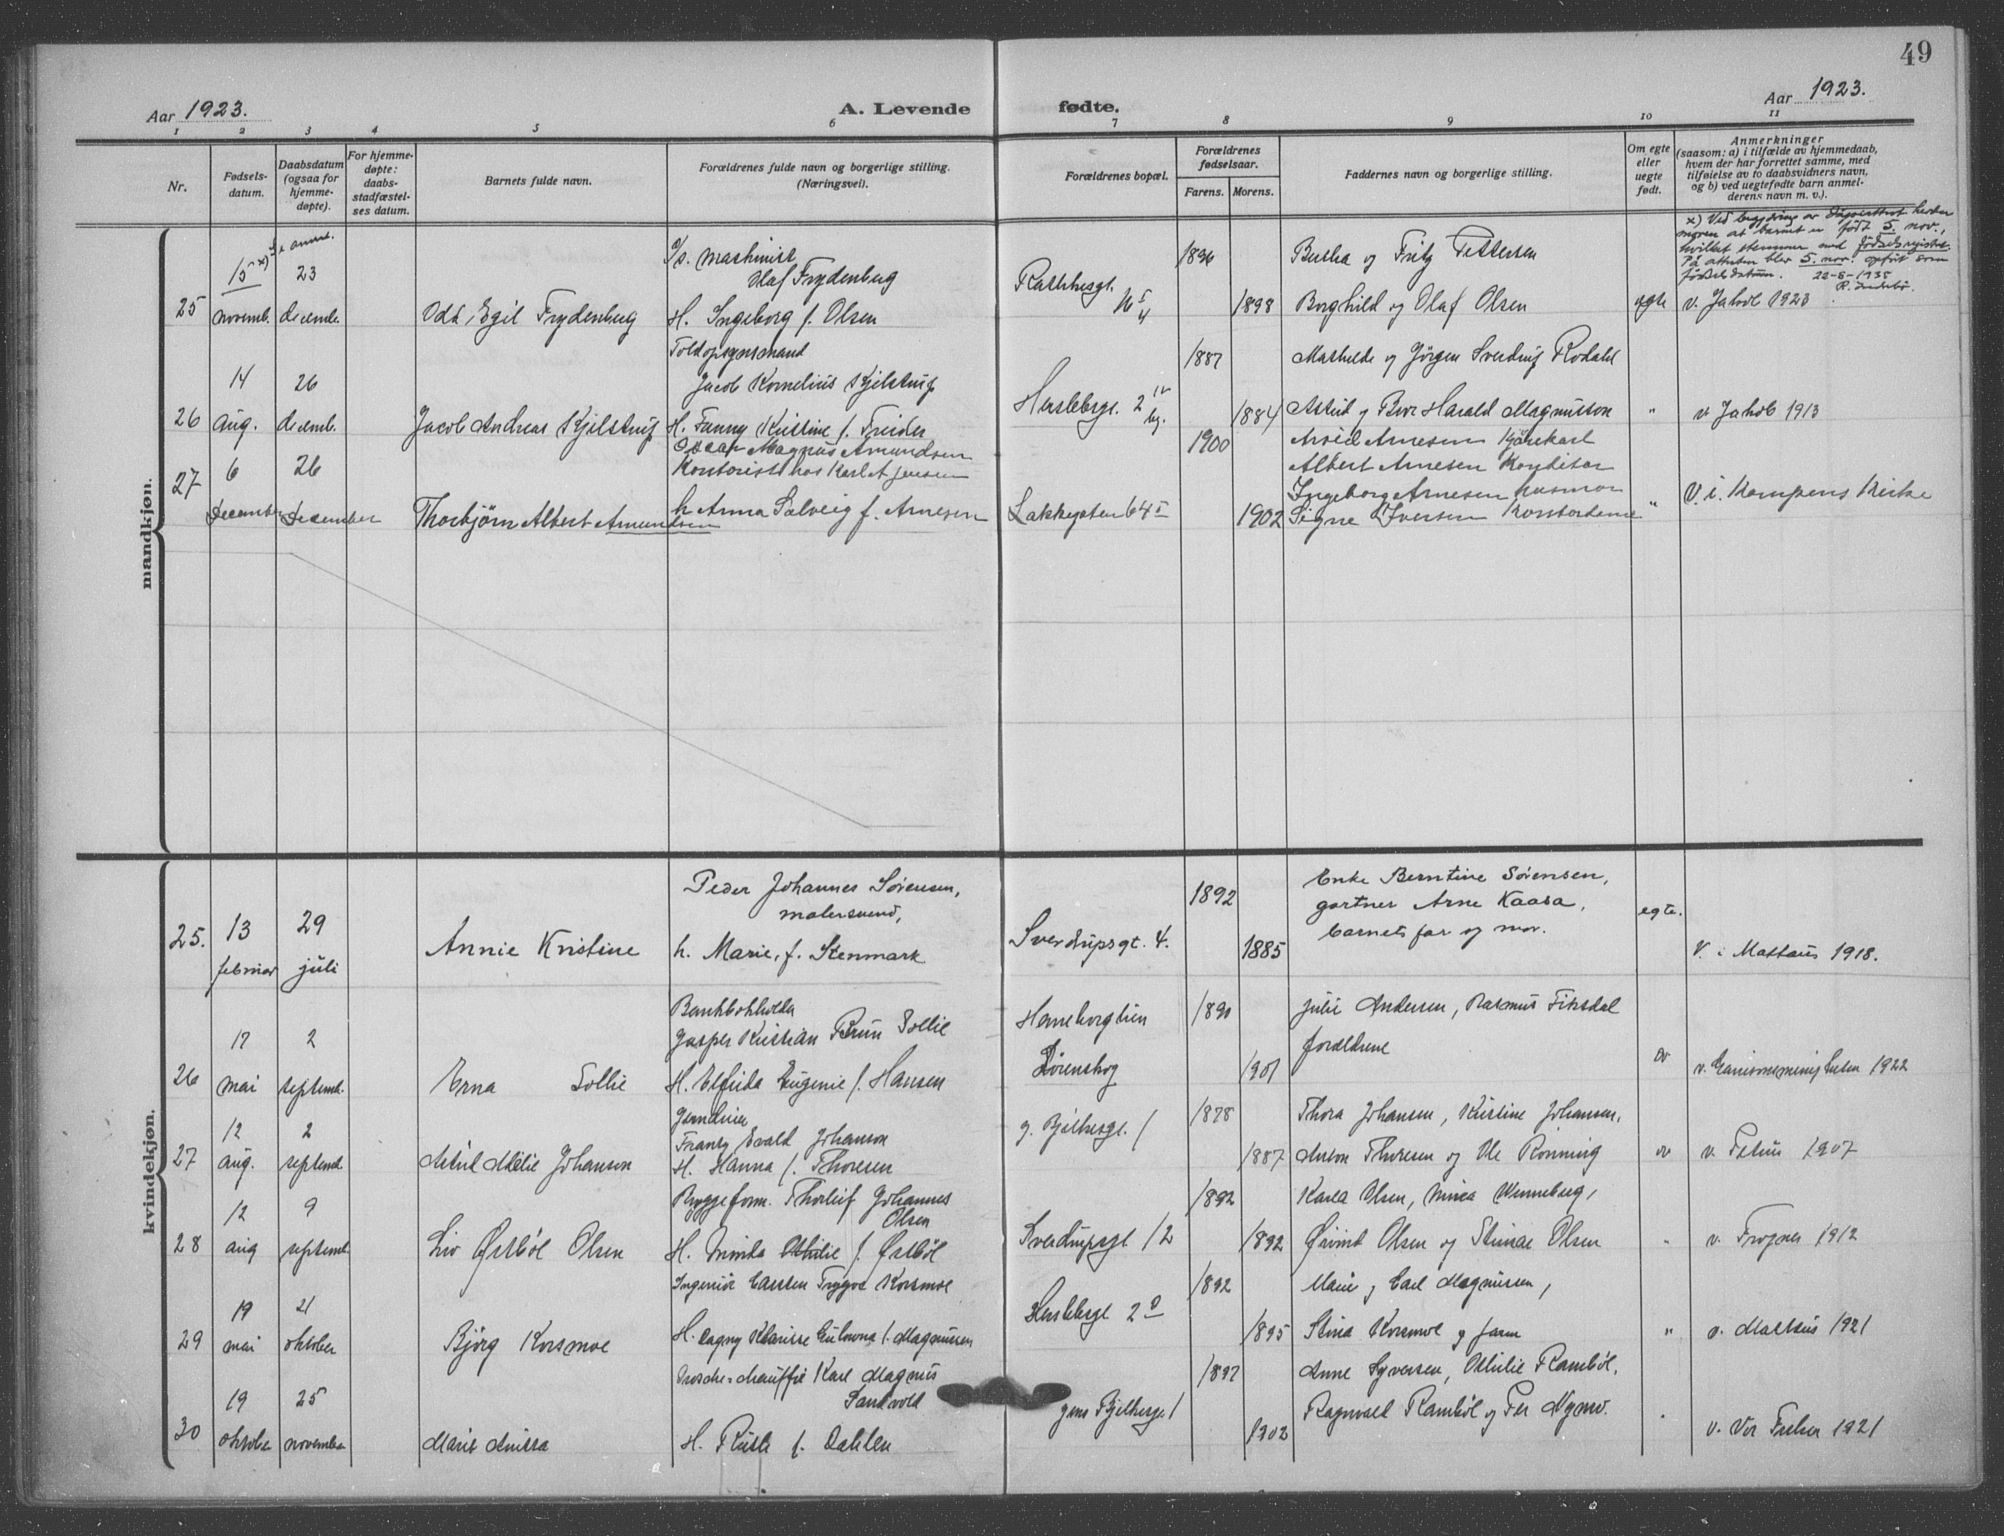 49
Aar 1923.
A. Levende fødte.
Aar 1923.
1 2 3 4 5 6 7 8 9 10 11
Nr.
Fødsels-
datum.
Daabsdatum
(ogsaa for
hjemme-
døpte).
For hjemme-
døpte:
daabs-
stadfæstel-
ses datum.
Barnets fulde navn.
Forældrenes fulde navn og borgerlige stilling.
(Næringsvei).
Forældrenes bopæl.
Forældrenes
fødselsaar.
Farens. Morens.
Faddernes navn og borgerlige stilling.
Om egte
eller
uegte
født.
Anmerkninger
(saasom: a) i tilfælde av hjemmedaab,
hvem der har forrettet samme, med
tilføielse av to daabsvidners navn,
og b) ved uegtefødte barn anmel-
derens navn m. v.).
mandkjøn.
x) Ved av hevder
moren at barnet er født 5. nov.,
hvilket stemmer med fødselsregistret
På attesten blev 5. nov. opført som
fødselsdatum. 22-8-1935
15 x) Se anm.
23
maskinist
Olaf Frydenberg
1896
Bertha og Fritz Pettersen
25 novemb. decemb. Odd Egil Frydenberg H. Ingeborg f. Olsen
Rathkesgt.
1898 Borghild og Olaf Olsen egte v. Jakob 1923
Toldopsynsmand
1887
Mathilde og Jørgen Sverdrup Rodahl
14 26 Jacob Kornelius Kjelstrup
26 aug. decemb. Jacob Andreas Kjelstrup H. Fanny Kristine f.
Herslebsgt. 2
1884 Astrid og Harald Magnusson " v. Jakob 1913
Oscar Magnus Amundsen
1900
Arvid Arnesen Kjørekarl
6 26 Kontorist hos Karl A Jensen
Albert Arnesen Konditor
27 December December Thorbjørn Albert Amundsen h Anna Solveig f. Arnesen
Lakkegaten 64 I
1902
Ingeborg Arnesen husmor
Signe Iversen Kontordame " V. i. Kampens Kirke
kvindekjøn.
Peder Johannes Sørensen,
malersvend,
1892
Enke Berntine Sørensen,
gartner Arne Kaasa,
barnets far og mor.
egte.
25. 13 29
februar juli
Annie Kristine h. Marie, f. Stenmark
Sverdrupsgt. 4.
1885
V. i Mattæus 1918.
Bankbokholder
Jasper Kristian Brun Sollie
17 2
Lørenskog
Julie Andersen, Rasmus Fiksdal
forældrene
26 mai septemb. Erna Sollie H. Elfrida Eugenie f. Hansen
1901
1922
Jerndreier
Frantz Evald Johanson
12 2
g. Bjelkesgt. 1
1878
Thora Johansen, Kristine Johansen,
27 aug. septemb. Astrid Mélie Johanson H. Hanna f. Thoresen
1887 Anton Thoresen og Ole Rønning v. Petrus 1907
Byggeform. Thorleif Johannes
Olsen
12 9
1892
Karla Olsen, Wenneberg,
28 aug septemb. Liv Østbøl Olsen H. Minda Othilie f. Østbøl
Sverdrupsgt 12
1892 Øivind Olsen og Olsen " v. Frogner 1912
Ingeniør Carsten Trygve Korsmoe
19 21
Herslebsgt 2
1892
Marie og Carl Magnussen,
29 mai oktober Bjørg Korsmoe H. Dagny Klarisse f. Magnussen
1895 Stina Korsmoe og faren " v. Mattæus 1921
Karl Magnus
Sandvold
19 25
jens Bjelkesgt 1
1897
Anne Syversen, Othilie Rambøl,
30 oktober november Marie H. Ruth f. Dahlen
1902 Ragnvald Rambøl og Per v. Vor Frelser 1921